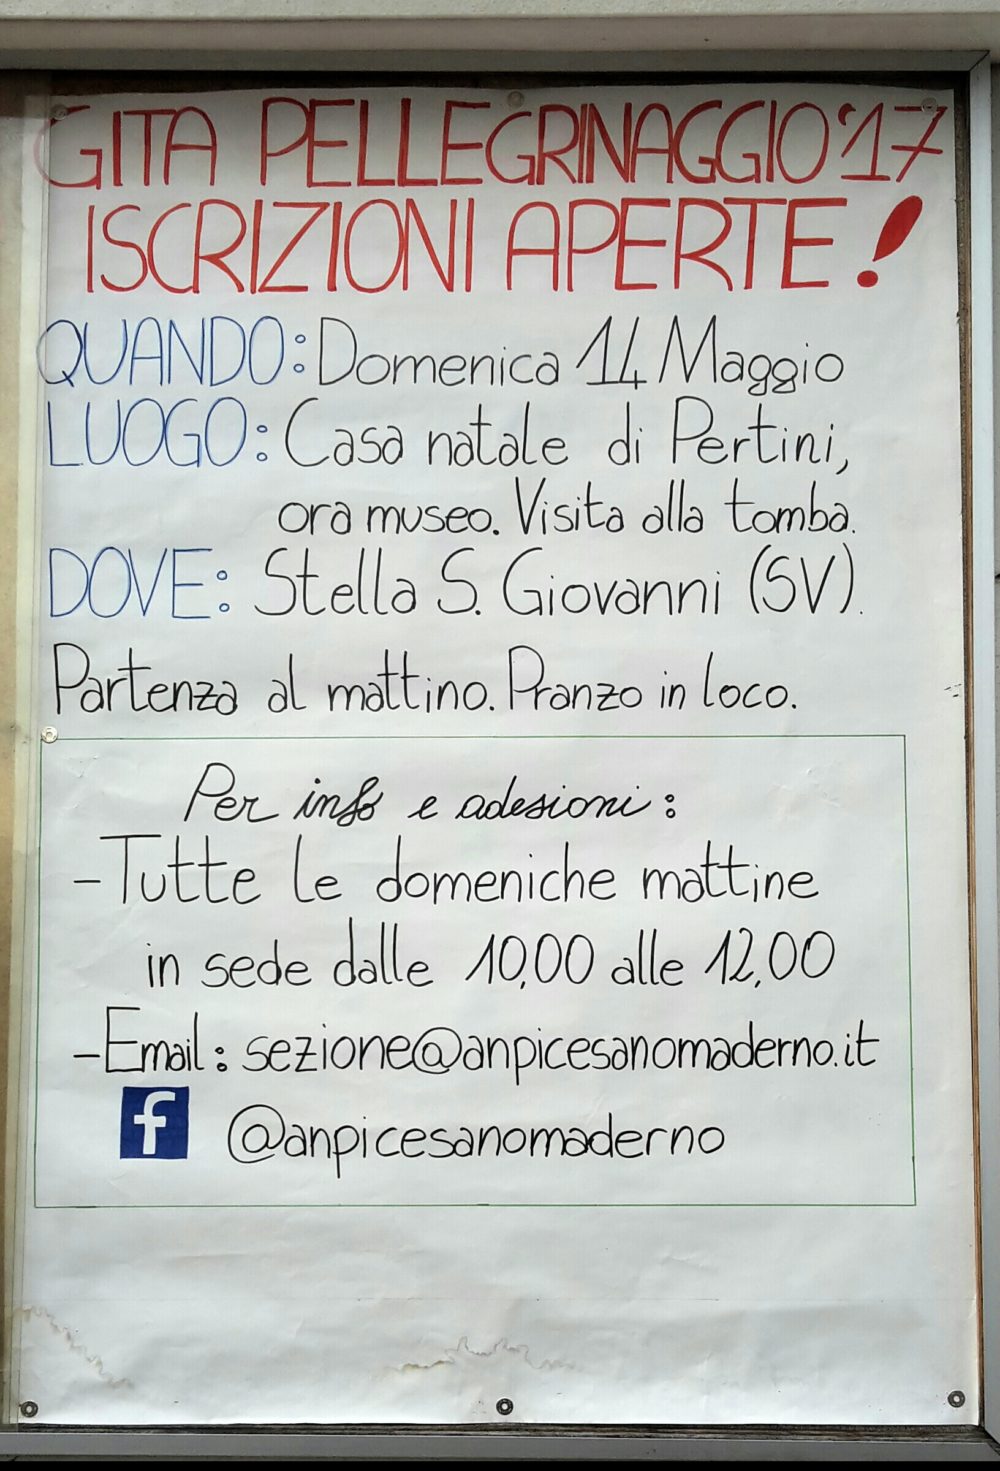 GITA PELLEGRINAGGIO '17
ISCRIZIONI APERTE!
QUANDO: Domenica 14 Maggio
LUOGO: Casa natale di Pertini,
ora museo. Visita alla tomba.
DOVE: Stella S. Giovanni (SV).
Partenza al mattino. Pranzo in loco.
Per info e adesioni:
- Tutte le domeniche mattine
in sede dalle 10,00 alle 12,00
- Email: sezione@anpicesanomaderno.it
f @anpicesanomaderno